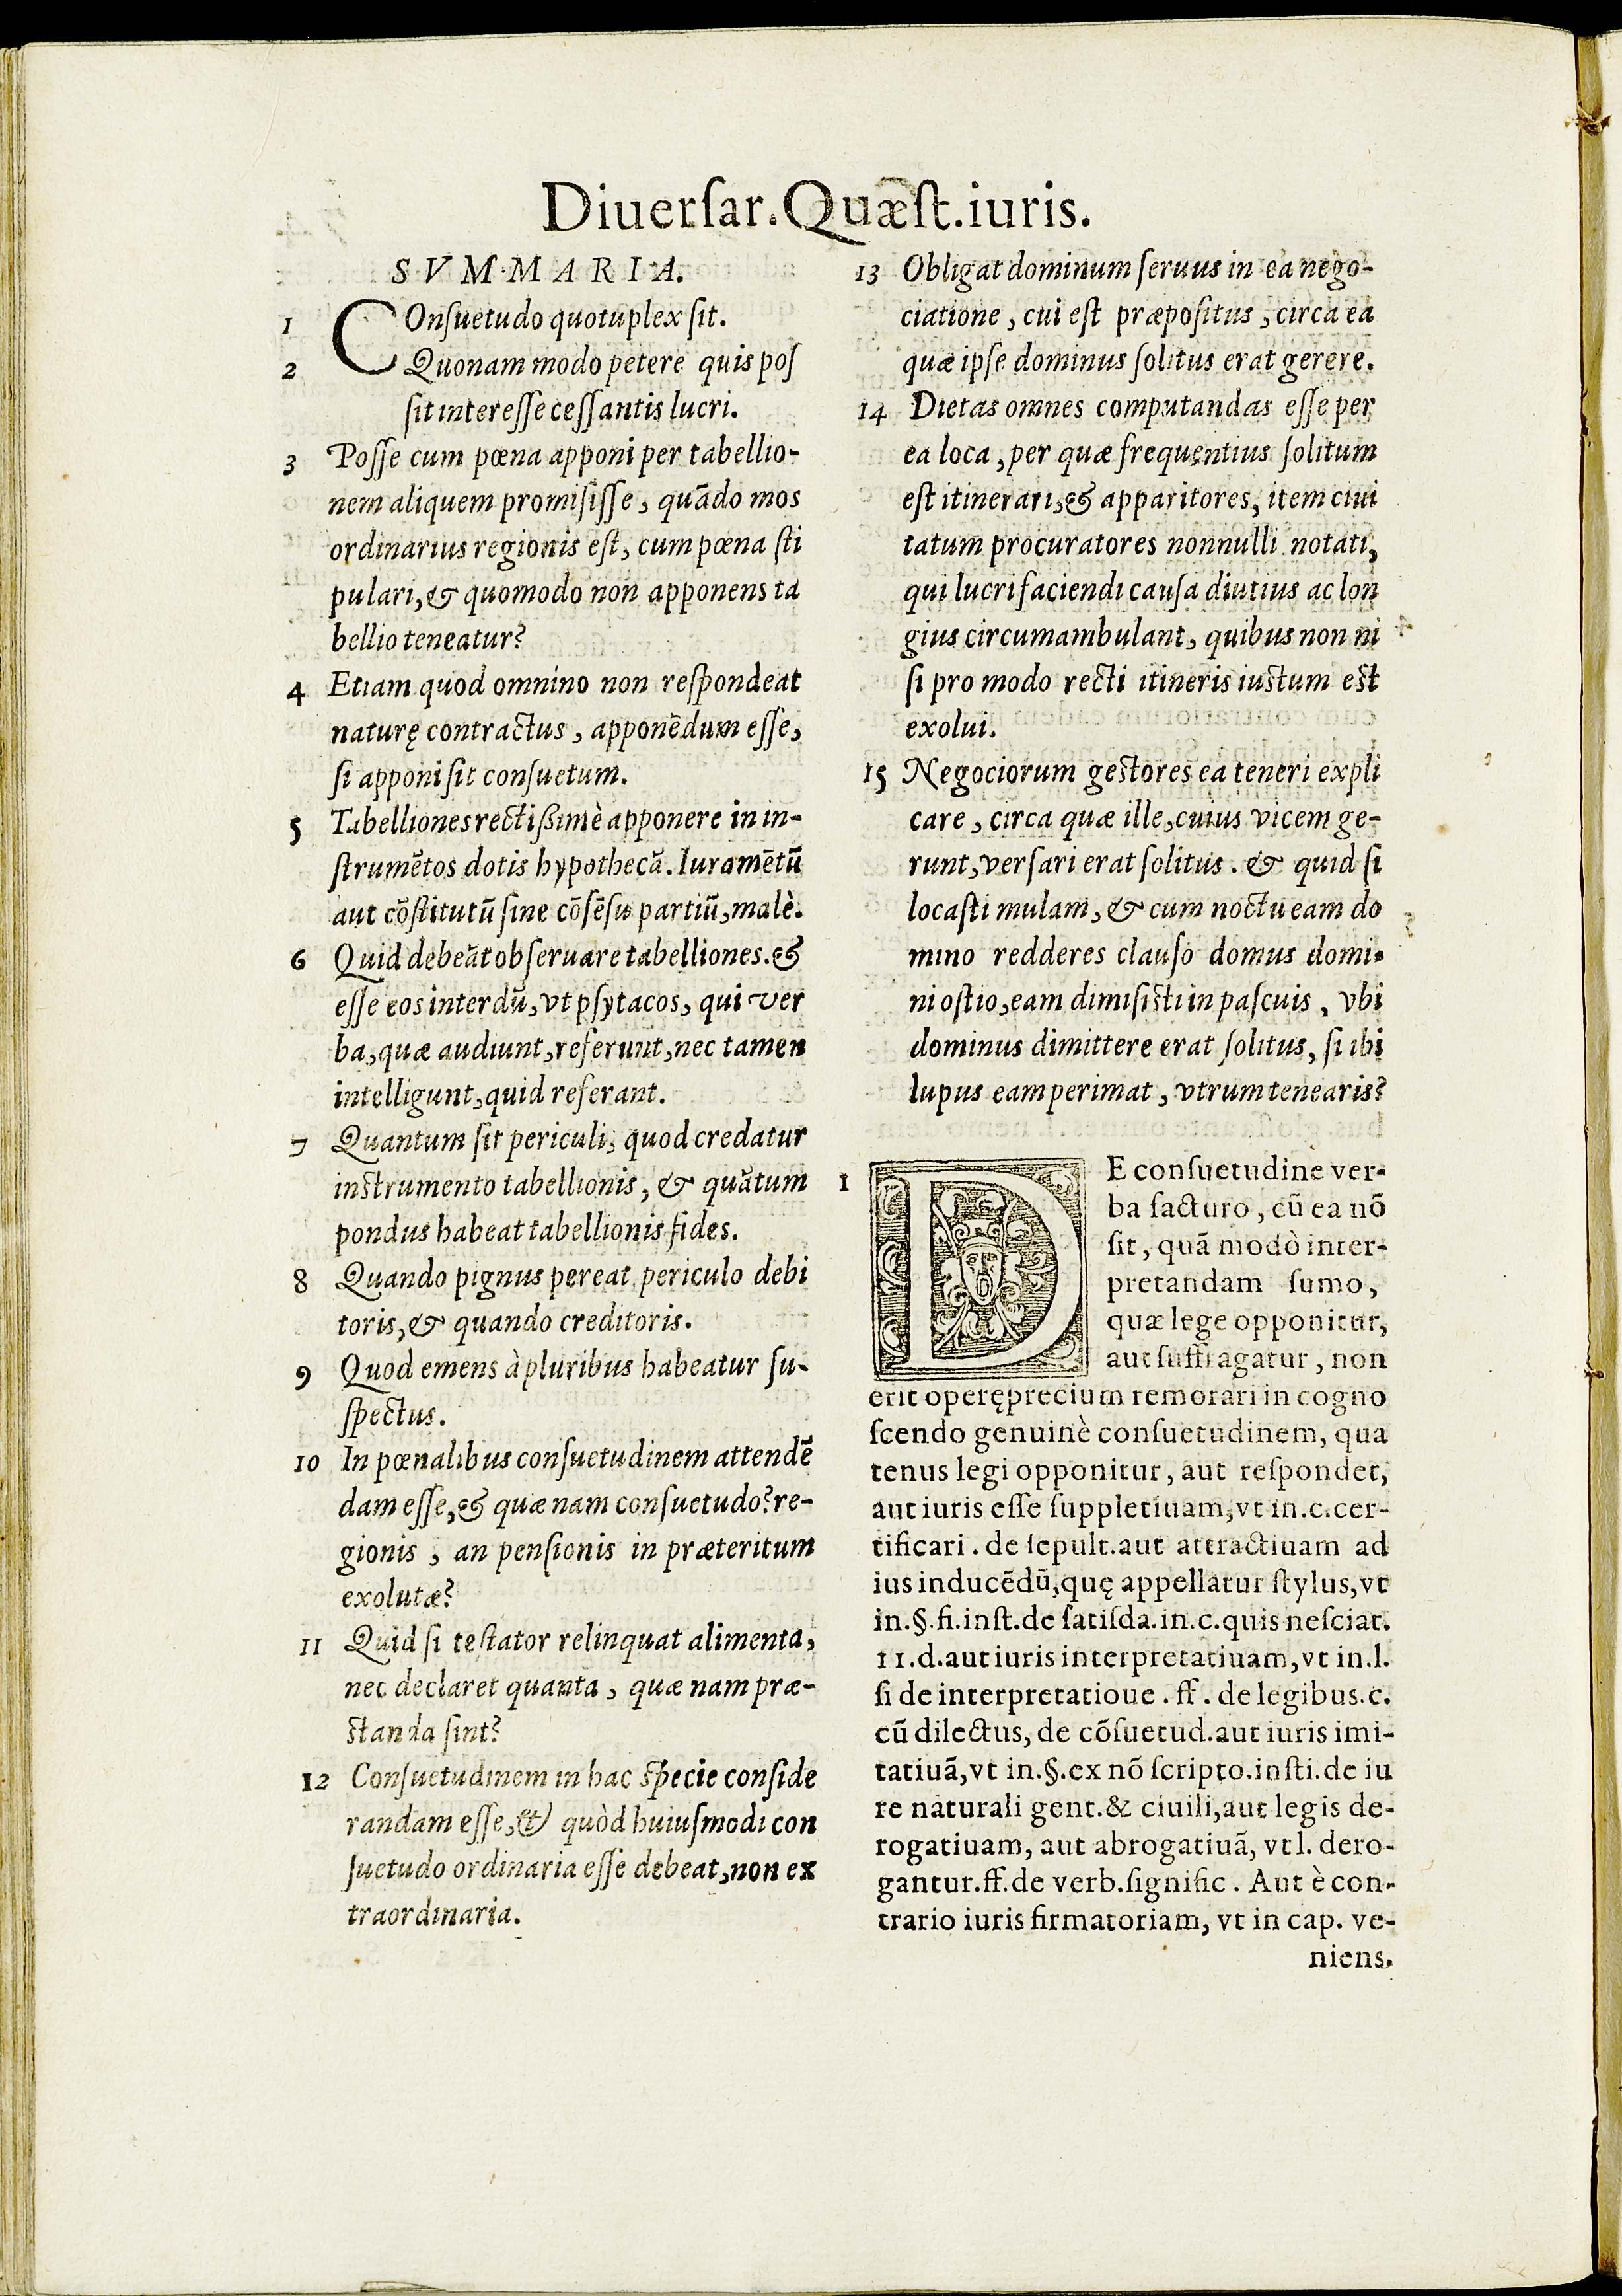 Diuerſar. Quæſt. iuris.
SVMMARIA.
1 COnſuetudo quotuplex ſit.
2 Quonam modo petere quis poſ
ſit intereſſe ceſſantis lucri.
3 Poſſe cum pœna apponi per tabellio-
nem aliquem promiſiſſe, quãdo mos
ordinarius regionis eſt, cum pœna ſti
pulari, & quomodo non apponens ta
bellio teneatur?
4 Etiam quod omnino non reſpondeat
naturę contractus, apponẽdum eſſe,
ſi apponi ſit conſuetum.
5 Tabelliones rectißimè apponere in in-
ſtrumẽtos dotis hypothecã. Iuramẽtũ
aut cõſtitutũ ſine cõſẽſu partiũ, malè.
6 Quid debeãt obſeruare tabelliones. &
eſſe eos interdũ, vt pſytacos, qui ver
ba, quæ audiunt, referunt, nec tamen
intelligunt, quid referant.
7 Quantum ſit periculi, quod credatur
inſtrumento tabellionis, & quãtum
pondus habeat tabellionis fides.
8 Quando pignus pereat periculo debi
toris, & quando creditoris.
9 Quod emens à pluribus habeatur ſu-
ſpectus.
10 In pœnalibus conſuetudinem attendẽ
dam eſſe, & quæ nam conſuetudo? re-
gionis, an penſionis in præteritum
exolutæ?
11 Quid ſi teſtator relinquat alimenta,
nec declaret quanta, quæ nam præ-
ſtanda ſint?
12 Conſuetudinem in hac ſpecie conſide
randam eſſe, & quòd huiuſmodi con
ſuetudo ordinaria eſſe debeat, non ex
traordinaria.
13 Obligat dominum ſeruus in ea nego-
ciatione, cui eſt præpoſitus, circa ea
quæ ipſe dominus ſolitus erat gerere.
14 Dietas omnes computandas eſſe per
ea loca, per quæ frequentius ſolitum
eſt itinerari, & apparitores, item ciui
tatum procuratores nonnulli notati,
qui lucri faciendi cauſa diutius ac lon
gius circumambulant, quibus non ni
ſi pro modo recti itineris iuſtum eſt
exolui.
15 Negociorum geſtores ea teneri expli
care, circa quæ ille, cuius vicem ge-
runt, verſari erat ſolitus. & quid ſi
locaſti mulam, & cum noctu eam do
mino redderes clauſo domus domi-
ni oſtio, eam dimiſiſti in paſcuis, vbi
dominus dimittere erat ſolitus, ſi ibi
lupus eam perimat, vtrum tenearis?
1 DE conſuetudine ver-
ba facturo, cũ ea nõ
ſit, quã modò inter-
pretandam ſumo,
quæ lege opponitur,
aut ſuffragatur, non
erit operęprecium remorari in cogno
ſcendo genuinè conſuetudinem, qua
tenus legi opponitur, aut reſpondet,
aut iuris eſſe ſuppletiuam, vt in.c.cer-
tificari. de ſepult. aut attractiuam ad
ius inducẽdũ, quę appellatur ſtylus, vt
in.§.fi.inſt.de ſatiſda.in.c.quis neſciat.
11.d.aut iuris interpretatiuam, vt in.l.
ſi de interpretatioue. ff. de legibus.c.
cũ dilectus, de cõſuetud.aut iuris imi-
tatiuã, vt in.§.ex nõ ſcripto.inſti.de iu
re naturali gent.& ciuili, aut legis de-
rogatiuam, aut abrogatiuã, vt l. dero-
gantur.ff.de verb.ſignific. Aut è con-
trario iuris firmatoriam, vt in cap. ve-
niens.